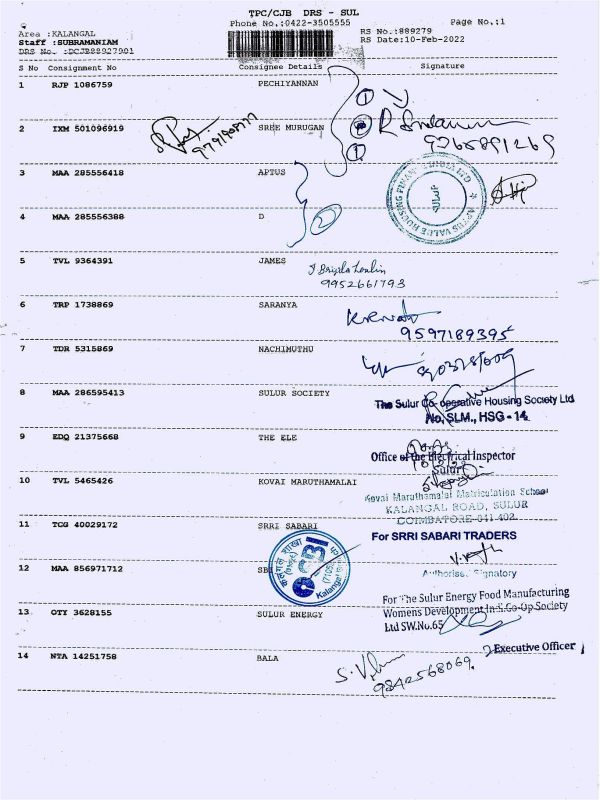 TPC/CJB DRS - SUL
Phone No.:0422-3505555
Page No.:1
Area :KALANGAL
RS No.:889279
Staff :SUBRAMANIAM
RS Date:10-Feb-2022
DRS No. :DCJB88927991
S No Consignment No Consignee Details Signature
1 RJP 1086759 PECHIYANNAN
2 IXM 501096919 SREE MURUGAN
9265891269
3 MAA 285556418 APTUS
APTUS VALUE HOUSING FINANCE INDIA LTD
4 MAA 285556388 D
2
5 TVL 9364391 JAMES
9952661793
6 TRP 1738869 SARANYA
9597189395
7 TDR 5315869 NACHIMUTHU
8 MAA 286595413 SULUR SOCIETY
The Sulur Co-operative Housing Society Ltd
No, SLM., HSG - 14.
9 EDQ 21375668 THE ELE
Office of the Electrical Inspector
Sulur
10 TVL 5465426 KOVAI MARUTHAMALAI
Kovai Maruthamalai Matriculation School
KALANGAL ROAD, SULUR
COIMBATORE-641 402.
11 TCG 40029172 SRRI SABARI
For SRRI SABARI TRADERS
Authorised Signatory
12 MAA 856971712 SBI
SBI
Kalangal
For The Sulur Energy Food Manufacturing
Womens Development Ind.Co-Op Society
Ltd SW.No.65
13 OTY 3628155 SULUR ENERGY
Executive Officer
14 NTA 14251758 BALA
9842568069.